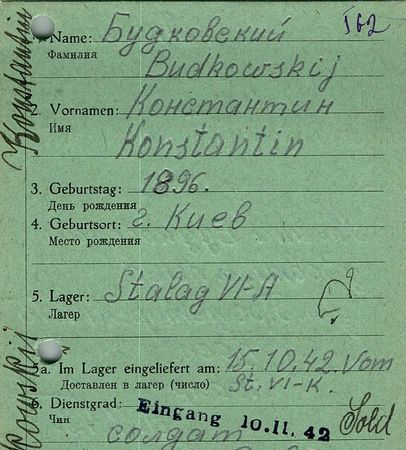 Konstantin
1. Name: Будковский I62
Фамилия
Budkowskij
2. Vornamen: Константин
Имя
Konstantin
3. Geburtstag: 1896.
День рождения
4. Geburtsort: г. Киев
Место рождения
5. Lager: Stalag VI-A
Лагерь
5a. Im Lager eingeliefert am: 15.10.42. Vom
Доставлен в лагерь (число) St. VI-K.
6. Dienstgrad: Eingang 10.11.42 Sold
Чин
солдат